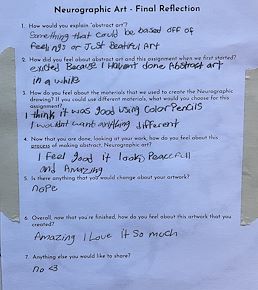 Neurographic Art - Final Reflection
1. How would you explain "abstract art"?
Something that could be based off of
feelings or Just Beatiful Art
2. How did you feel about abstract art and this assignment when we first started?
exited Because I havent done Abstract art
in a while
3. How do you feel about the materials that we used to create the Neurographic
drawing? If you could use different materials, what would you choose for this
assignment?
I think it was good using Color Pencils
I wouldnt want anything different
4. Now that you are done, looking at your work, how do you feel about this
process of making abstract, Neurographic art?
I feel good it looks Peacefull
and Amazing
5. Is there anything that you would change about your artwork?
nope
6. Overall, now that you're finished, how do you feel about this artwork that you
created?
Amazing I Love it So much
7. Anything else you would like to share?
no <3